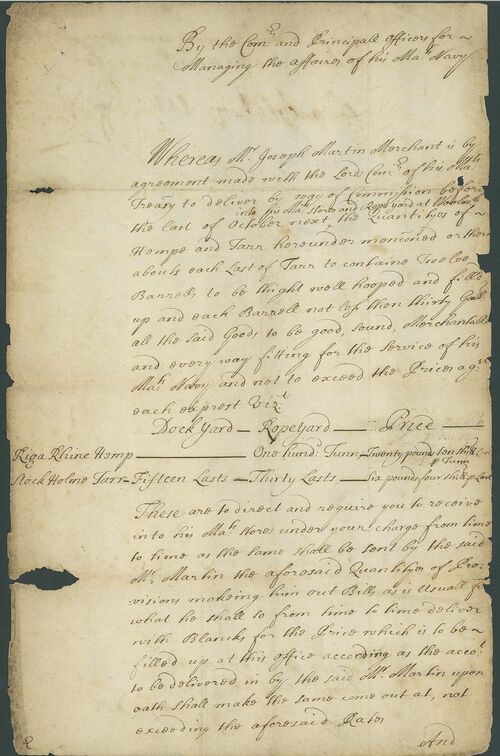 By the Comrs and Principall officers for
Managing the affaires of his Mats Navy
Whereas Mr Joseph Martin Merchant is by
agreement made with the Lords Comrs of his Mats
Treasury to deliver by way of Commission before
into his Mats Stores and Ropeyard at
the last of October next, the Quantitys of
Hempe and Tarr hereunder mencioned or there
abouts each Last of Tarr to containe Twelve
Barrells to be thight well hooped and filled
up and each Barrell not less then thirty Gall
all the said Goods to be good, sound, Merchantable
and every way fitting for the Service of his
Mats Navy and not to exceed the Prices agt
each exprest Vizt
Dock Yard — Ropeyard — Price —
Riga Rhine Hemp — One hund: Tunn — Twenty pounds ten shill
p Tunn
Stock Holme Tarr — Fifteen Lasts — Thirty Lasts — Six pounds four shill p Last
These are to direct and require you to receive
into his Mats Stores under your charge from time
to time as the same shall be sent by the said
Mr Martin the aforesaid Quantitys of Pro
visions makeing him out Bills as is Usuall for
what he shall so from time to time deliver
with Blancks for the Price which is to be
filled up at this office according as the accot
to be delivered in by the said Mr Martin upon
oath shall make the same come out at, not
exceeding the aforesaid Rates
And